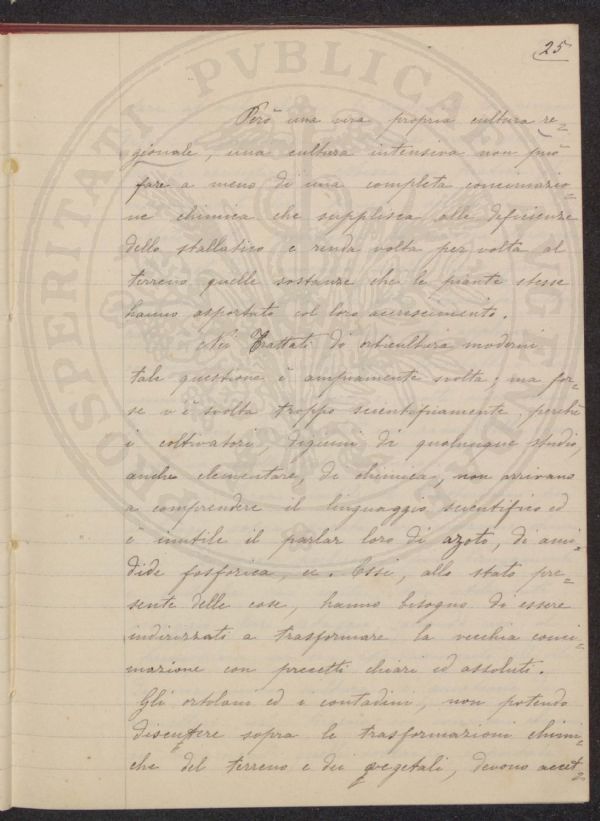 25
Però una vera propria cultura re=
gionale, una cultura intensiva non può
fare a meno di una completa concimazio=
ne chimica che supplisca alle deficienze
dello stallatico e renda volta per volta al
terreno quelle sostanze che le piante stesse
hanno asportato col loro accrescimento.
Nei Trattati di orticultura moderni
tale questione è ampiamente svolta; ma for=
se v'è svolta troppo scientificamente, perchè
i coltivatori, digiuni di qualunque studio,
anche elementare, di chimica, non arrivano
a comprendere il linguaggio scientifico ed
è inutile il parlar loro di azoto, di ani=
dide fosforica, ec. Essi, allo stato pre=
sente delle cose, hanno bisogno di essere
indirizzati a trasformare la vecchia conci=
mazione con precetti chiari ed assoluti.
Gli ortolani ed i contadini, non potendo
discutere sopra le trasformazioni chimi=
che del terreno e dei vegetali, devono accet=
PROSPERITATI PVBLICAE AVGENDAE